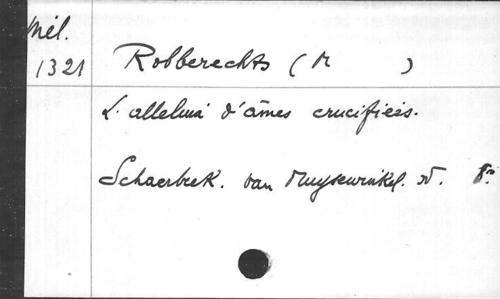 Mél.
1321
Robberechts (M )
L'alleluia d'âmes crucifiées.
Schaerbeek. van Muysewinkel. 8°.